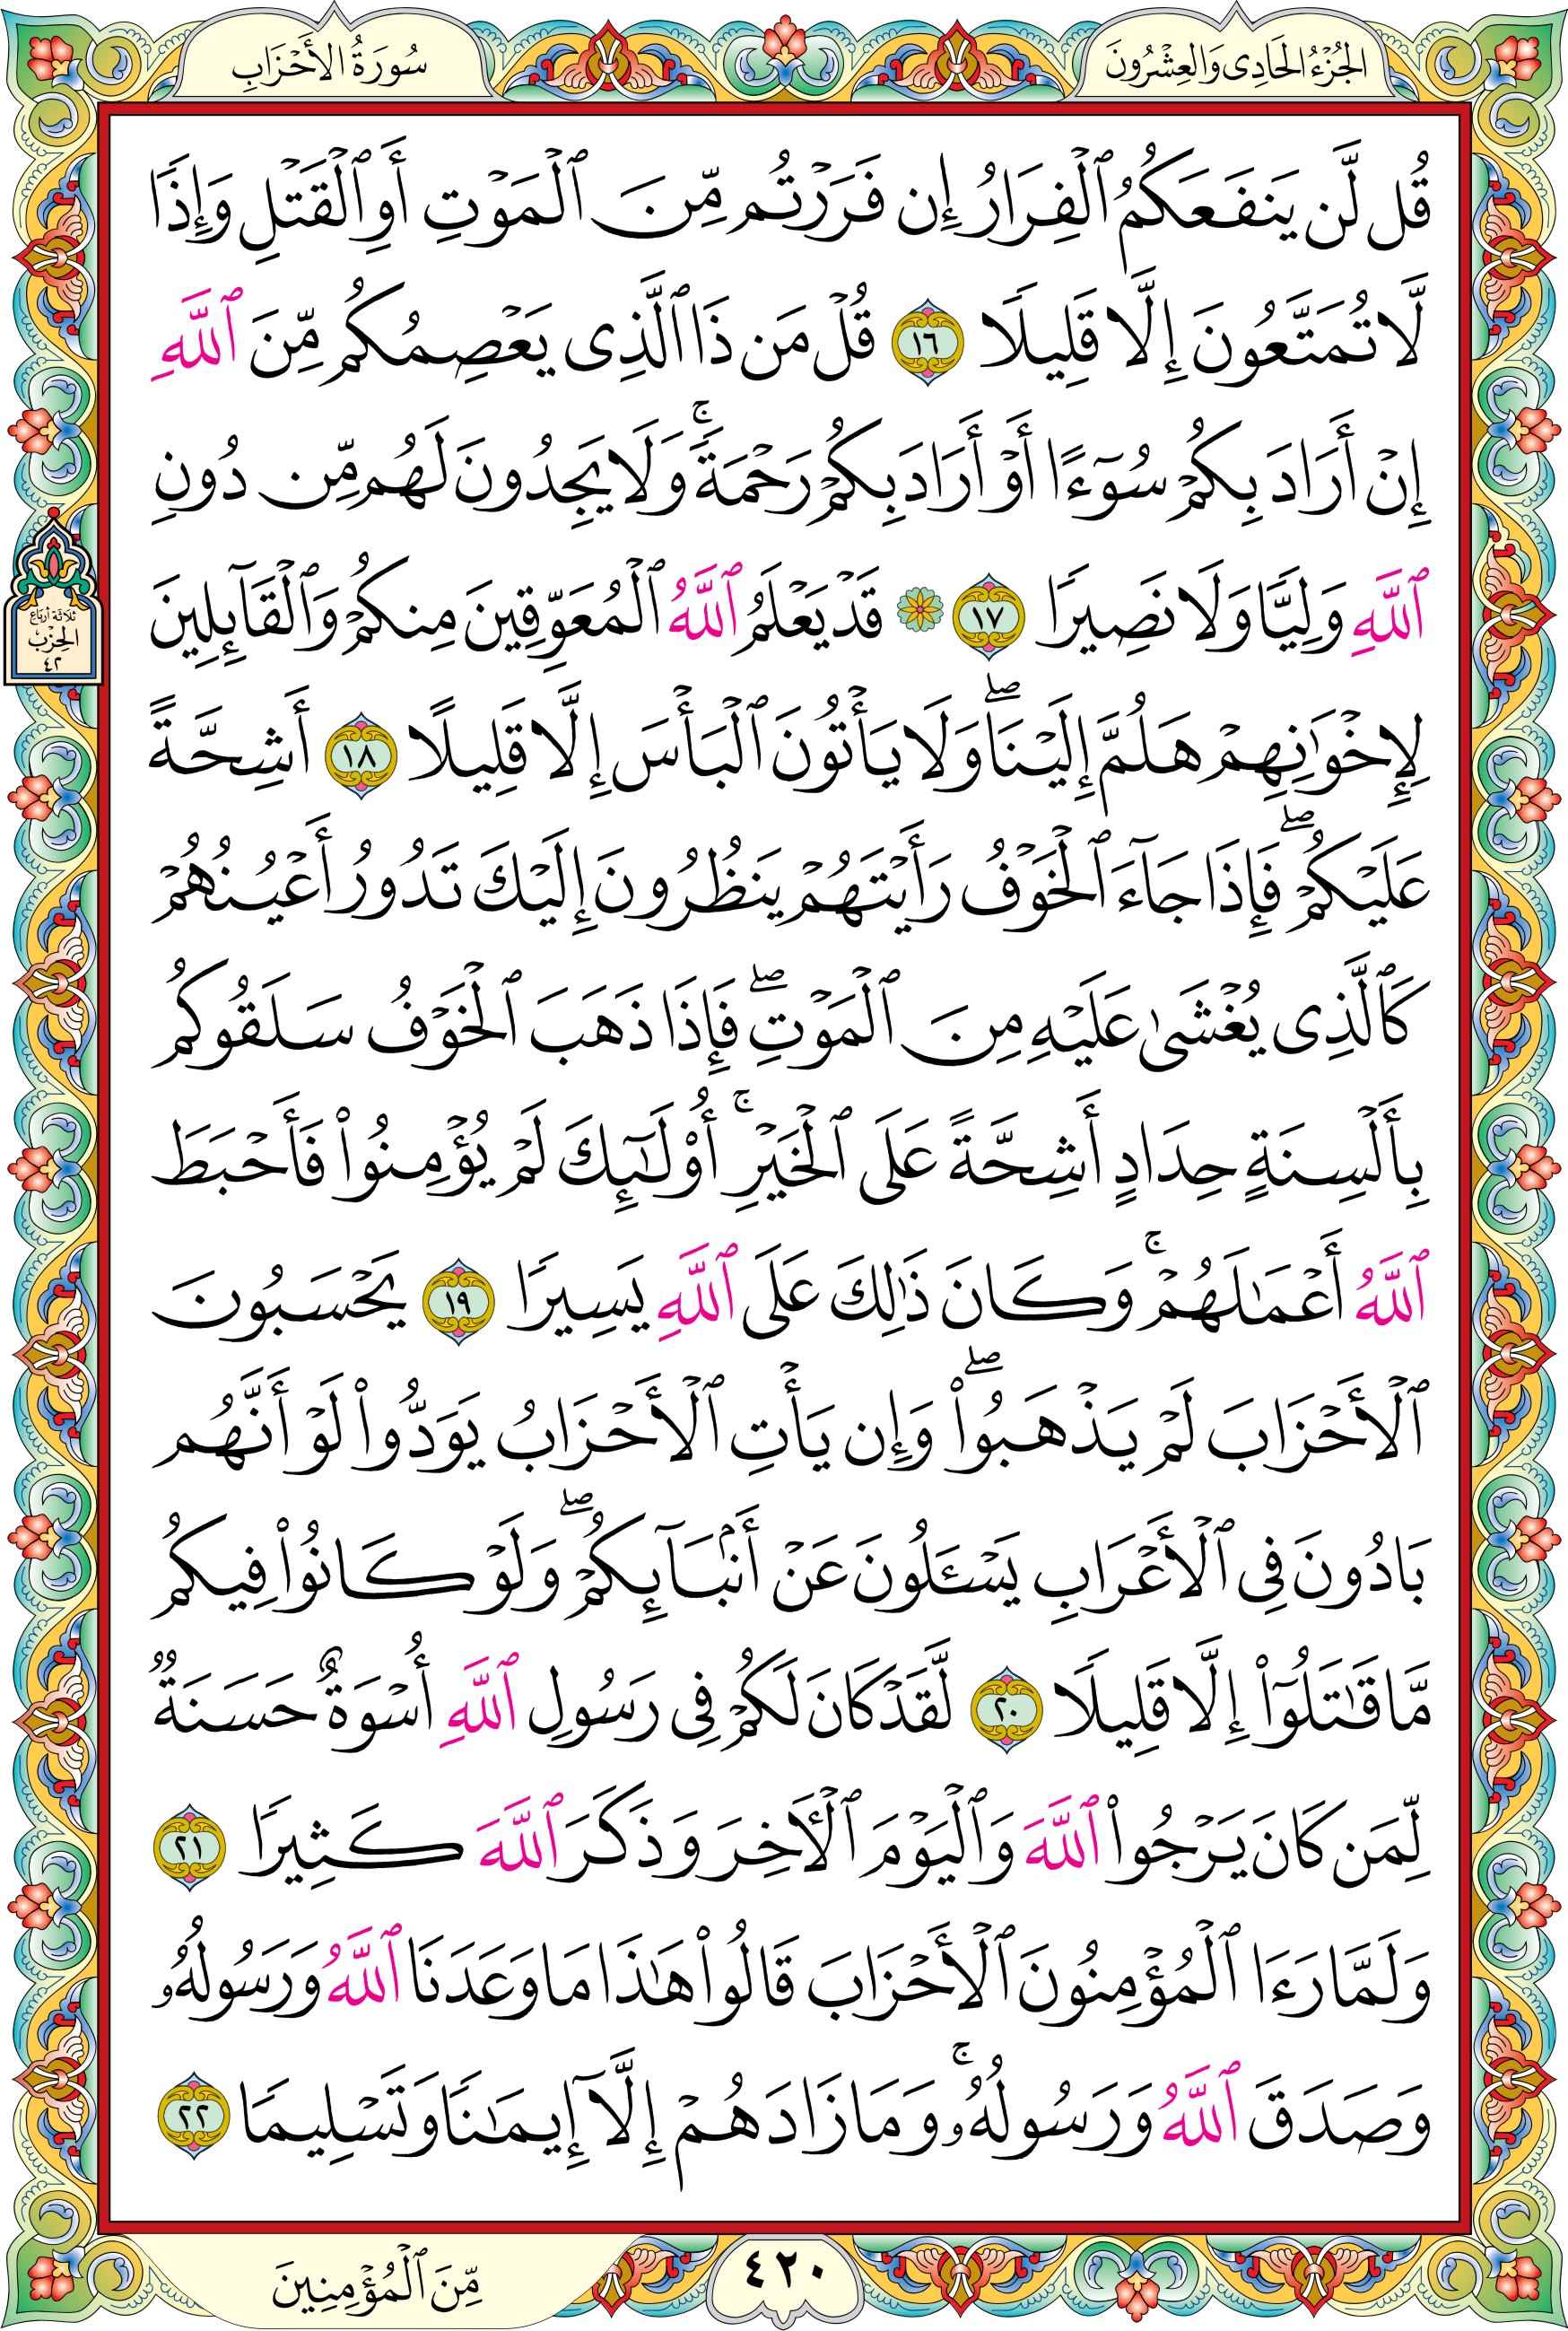 الجُزْءُ الحَادِى وَالعِشْرُونَ
سُورَةُ الأَحْزَابِ
قُل لَّن يَنفَعَكُمُ ٱلْفِرَارُ إِن فَرَرْتُم مِّنَ ٱلْمَوْتِ أَوِ ٱلْقَتْلِ وَإِذًا
لَّا تُمَتَّعُونَ إِلَّا قَلِيلًا ١٦ قُلْ مَن ذَا ٱلَّذِى يَعْصِمُكُم مِّنَ ٱللَّهِ
إِنْ أَرَادَ بِكُمْ سُوٓءًا أَوْ أَرَادَ بِكُمْ رَحْمَةً ۚ وَلَا يَجِدُونَ لَهُم مِّن دُونِ
ٱللَّهِ وَلِيًّا وَلَا نَصِيرًا ١٧ ۞ قَدْ يَعْلَمُ ٱللَّهُ ٱلْمُعَوِّقِينَ مِنكُمْ وَٱلْقَآئِلِينَ
لِإِخْوَٰنِهِمْ هَلُمَّ إِلَيْنَا ۖ وَلَا يَأْتُونَ ٱلْبَأْسَ إِلَّا قَلِيلًا ١٨ أَشِحَّةً
عَلَيْكُمْ ۖ فَإِذَا جَآءَ ٱلْخَوْفُ رَأَيْتَهُمْ يَنظُرُونَ إِلَيْكَ تَدُورُ أَعْيُنُهُمْ
كَٱلَّذِى يُغْشَىٰ عَلَيْهِ مِنَ ٱلْمَوْتِ ۖ فَإِذَا ذَهَبَ ٱلْخَوْفُ سَلَقُوكُم
بِأَلْسِنَةٍ حِدَادٍ أَشِحَّةً عَلَى ٱلْخَيْرِ ۚ أُو۟لَٰٓئِكَ لَمْ يُؤْمِنُوا۟ فَأَحْبَطَ
ٱللَّهُ أَعْمَٰلَهُمْ ۚ وَكَانَ ذَٰلِكَ عَلَى ٱللَّهِ يَسِيرًا ١٩ يَحْسَبُونَ
ٱلْأَحْزَابَ لَمْ يَذْهَبُوا۟ ۖ وَإِن يَأْتِ ٱلْأَحْزَابُ يَوَدُّوا۟ لَوْ أَنَّهُم
بَادُونَ فِى ٱلْأَعْرَابِ يَسْـَٔلُونَ عَنْ أَنۢبَآئِكُمْ ۖ وَلَوْ كَانُوا۟ فِيكُم
مَّا قَٰتَلُوٓا۟ إِلَّا قَلِيلًا ٢٠ لَّقَدْ كَانَ لَكُمْ فِى رَسُولِ ٱللَّهِ أُسْوَةٌ حَسَنَةٌ
لِّمَن كَانَ يَرْجُوا۟ ٱللَّهَ وَٱلْيَوْمَ ٱلْـَٔاخِرَ وَذَكَرَ ٱللَّهَ كَثِيرًا ٢١
وَلَمَّا رَءَا ٱلْمُؤْمِنُونَ ٱلْأَحْزَابَ قَالُوا۟ هَٰذَا مَا وَعَدَنَا ٱللَّهُ وَرَسُولُهُۥ
وَصَدَقَ ٱللَّهُ وَرَسُولُهُۥ ۚ وَمَا زَادَهُمْ إِلَّآ إِيمَٰنًا وَتَسْلِيمًا ٢٢
ثَلَاثَة أرباع
الحِزْب
٤٢
٤٢٠
مِّنَ ٱلْمُؤْمِنِينَ